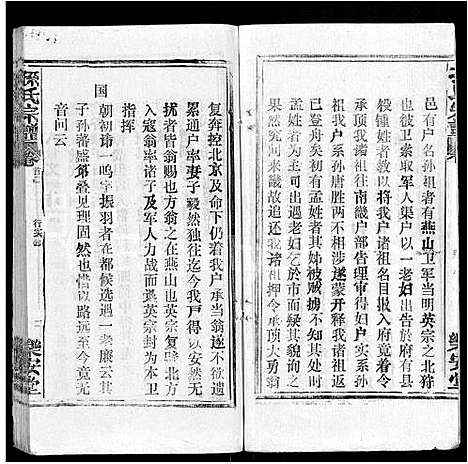 邑有户名孙祖者有燕山卫军当明英宗之北狩
也彼卫索取军人渠户以一老妇出告於府有县
毂锺姓者教以将我户诸祖名目报入府竟著我
承顶我户诸祖往南畿户部告理审得妇户实系孙
祖我户系孙唐胜两不相涉遂蒙开释我诸祖返
至中途有初孟姓者其姊被贼掳不知其处时
方访觅未得遇老妇乞於市面疑其貌询
果然究问来畿故追还我诸祖赍令承顶大勇翁
复奔控北京及命下仍着我户承当翁遂不坐
累通户率妻子毅然独往迄今我户得以安然无
扰者皆翁赐也方翁之在燕山也英宗复驿北方
入寇翁率诸子及军人力战而还英宗封为本卫
指挥
国
朝初时一鸣宇振羽者在都候选遇一孝廉云其
子孙蕃盛第叠见理固然也惜以路远未
音问云
孙氏宗谱
卷首之
行实
二
乐安堂
乐安堂